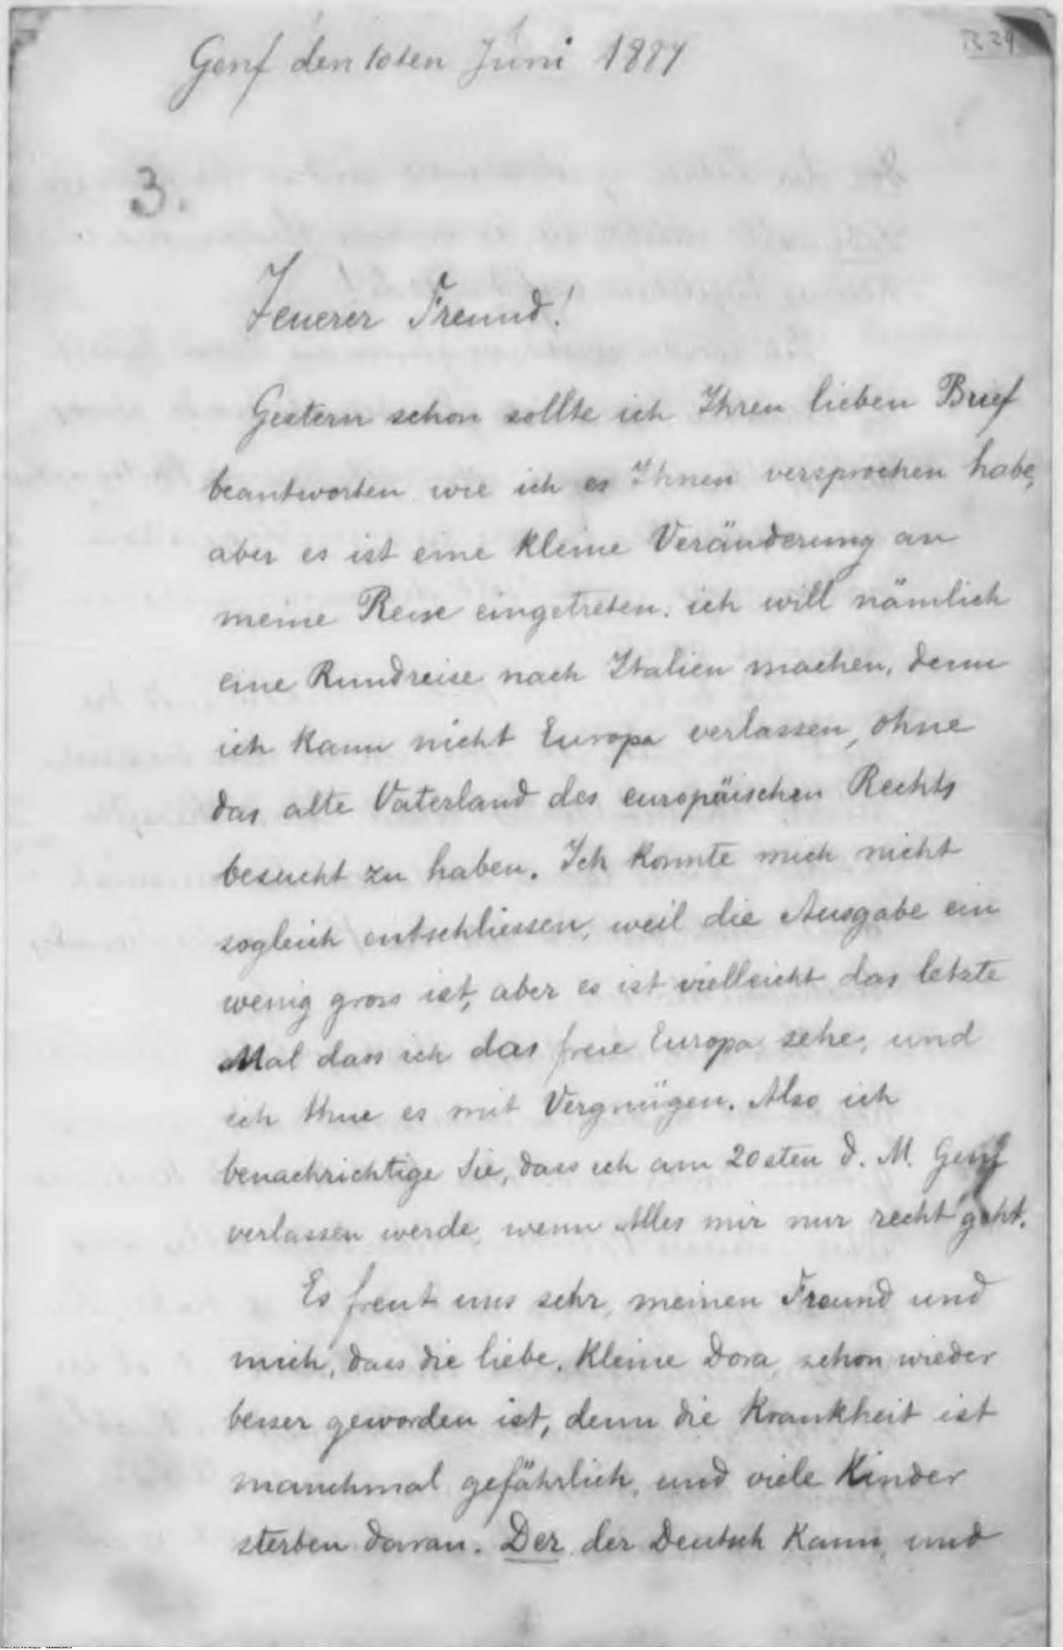 Genf den 10ten Juni 1887
R 29
3.
Teuerer Freund!
Gestern schon sollte ich Ihren lieben Brief
beantworten wie ich es Ihnen versprochen habe,
aber es ist eine kleine Veränderung an
meine Reise eingetreten. ich will nämlich
eine Rundreise nach Italien machen, denn
ich kann nicht Europa verlassen, ohne
das alte Vaterland des europäischen Rechts
besucht zu haben. Ich konnte mich nicht
sogleich entschliessen, weil die Ausgabe ein
wenig gross ist, aber es ist vielleicht das letzte
Mal dass ich das freie Europa sehe, und
ich thue es mit Vergnügen. Also ich
benachrichtige Sie, dass ich am 20sten d. M. Genf
verlassen werde, wenn Alles mir nur recht geht.
Es freut uns sehr, meinen Freund und
mich, dass die liebe, kleine Dora, schon wieder
besser geworden ist, denn die Krankheit ist
manchmal gefährlich, und viele Kinder
sterben daran. Der, der Deutsch kann, und